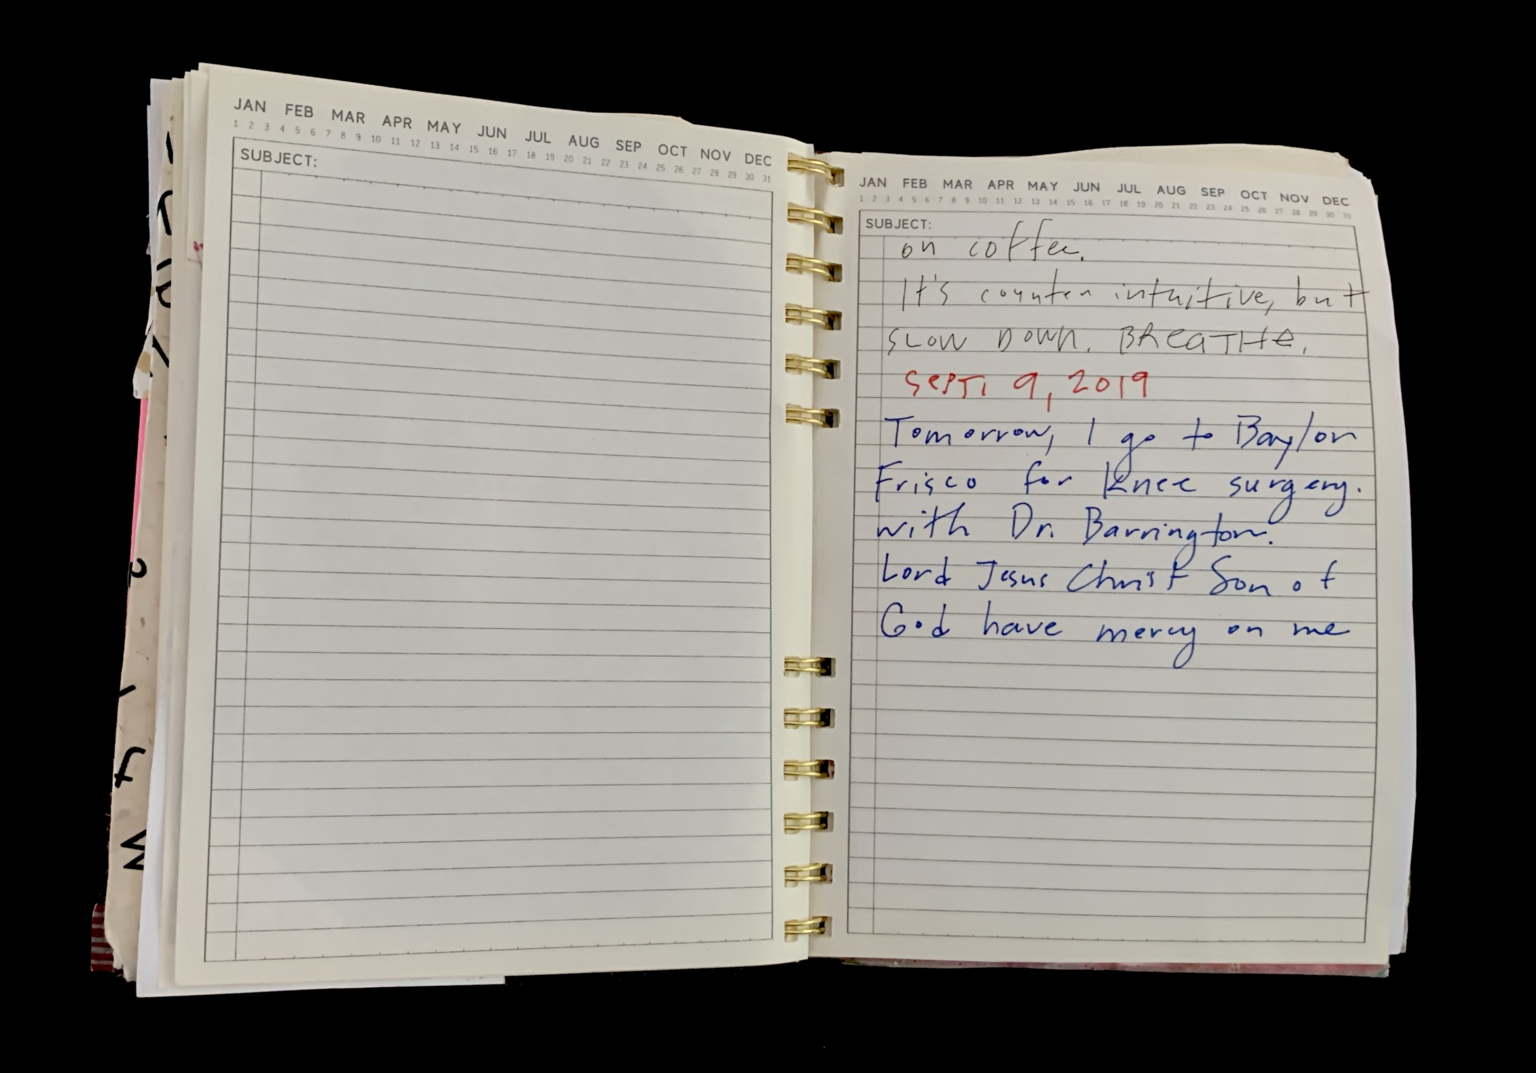 JAN FEB MAR APR MAY JUN JUL AUG SEP OCT NOV DEC
1 2 3 4 5 6 7 8 9 10 11 12 13 14 15 16 17 18 19 20 21 22 23 24 25 26 27 28 29 30 31
SUBJECT:
JAN FEB MAR APR MAY JUN JUL AUG SEP OCT NOV DEC
1 2 3 4 5 6 7 8 9 10 11 12 13 14 15 16 17 18 19 20 21 22 23 24 25 26 27 28 29 30 31
SUBJECT:
on coffee.
It's counter intuitive, but
SLOW DOWN. BREATHE.
SEPT. 9, 2019
Tomorrow, I go to Baylor
Frisco for knee surgery.
with Dr. Barrington.
Lord Jesus Christ Son of
God have mercy on me